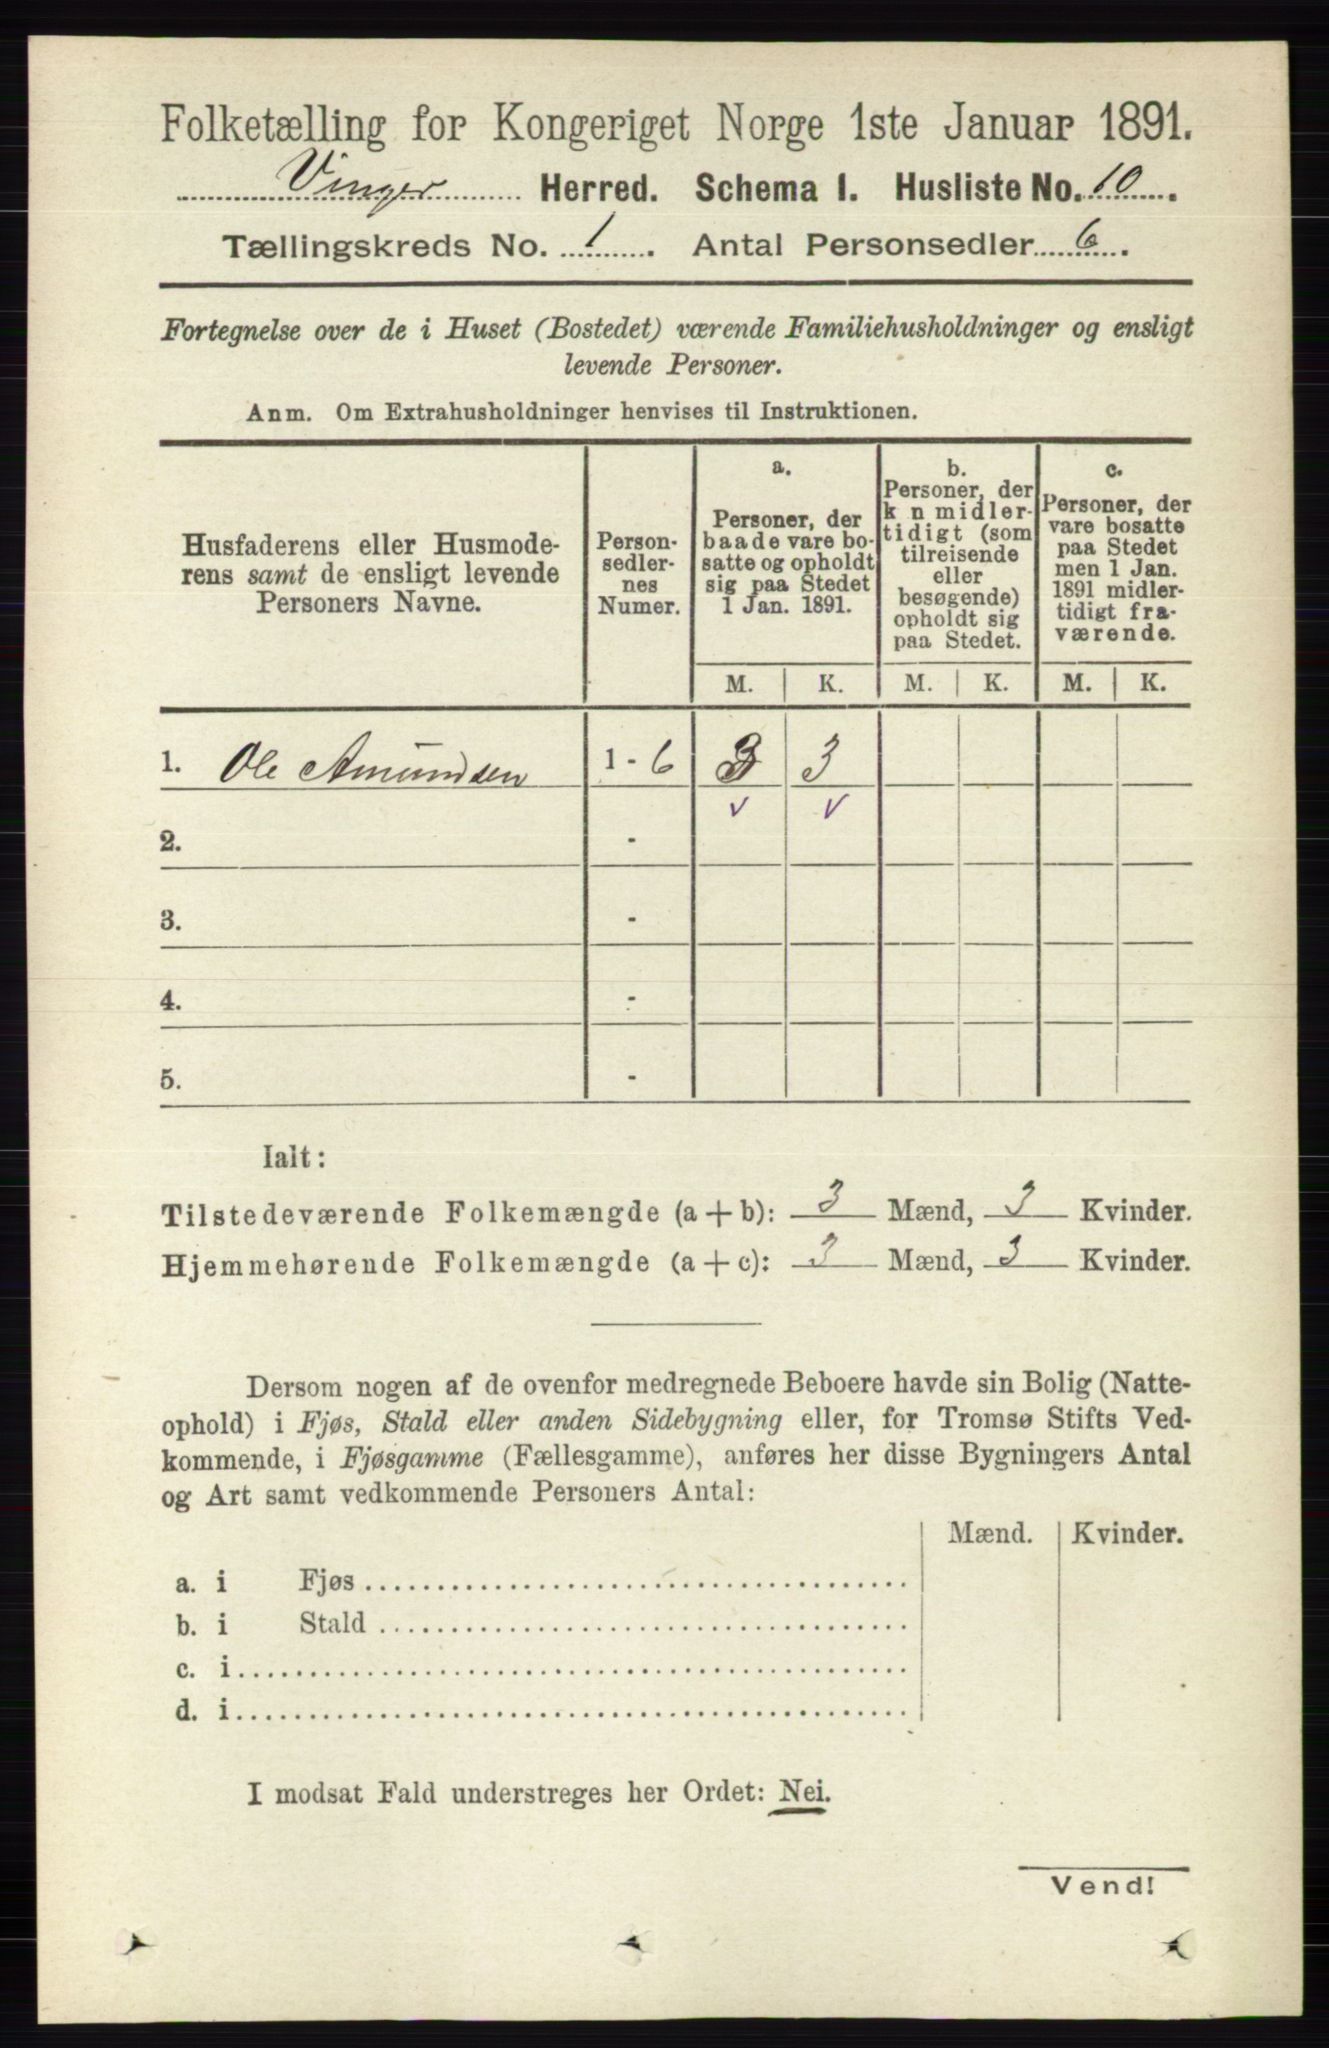 Folketælling for Kongeriget Norge 1ste Januar 1891.
Vinger Herred. Schema 1. Husliste No. 10.
Tællingskreds No. 1. Antal Personsedler 6.
Fortegnelse over de i Huset (Bostedet) værende Familiehusholdninger og ensligt
levende Personer.
Anm. Om Extrahusholdninger henvises til Instruktionen.
Husfaderens eller Husmode-
rens samt de ensligt levende
Personers Navne.
Person-
sedler-
nes
Numer.
a.
Personer, der
baade vare bo-
satte og opholdt
sig paa Stedet
1 Jan. 1891.
b.
Personer, der
k n midler-
tidigt (som
tilreisende
eller
besøgende)
opholdt sig
paa Stedet.
c.
Personer, der
vare bosatte
paa Stedet
men 1 Jan.
1891 midler-
tidigt fra-
værende.
M. K. M. K. M. K.
1. Ole Amundsen 1 - 6 3 3
v v
2. -
3. -
4. -
5. -
Ialt:
Tilstedeværende Folkemængde (a + b): 3 Mænd, 3 Kvinder.
Hjemmehørende Folkemængde (a + c): 3 Mænd, 3 Kvinder.
Dersom nogen af de ovenfor medregnede Beboere havde sin Bolig (Natte-
ophold) i Fjøs, Stald eller anden Sidebygning eller, for Tromsø Stifts Ved-
kommende, i Fjøsgamme (Fællesgamme), anføres her disse Bygningers Antal
og Art samt vedkommende Personers Antal:
Mænd. Kvinder.
a. i Fjøs
b. i Stald
c. i
d. i
I modsat Fald understreges her Ordet: Nei.
Vend!